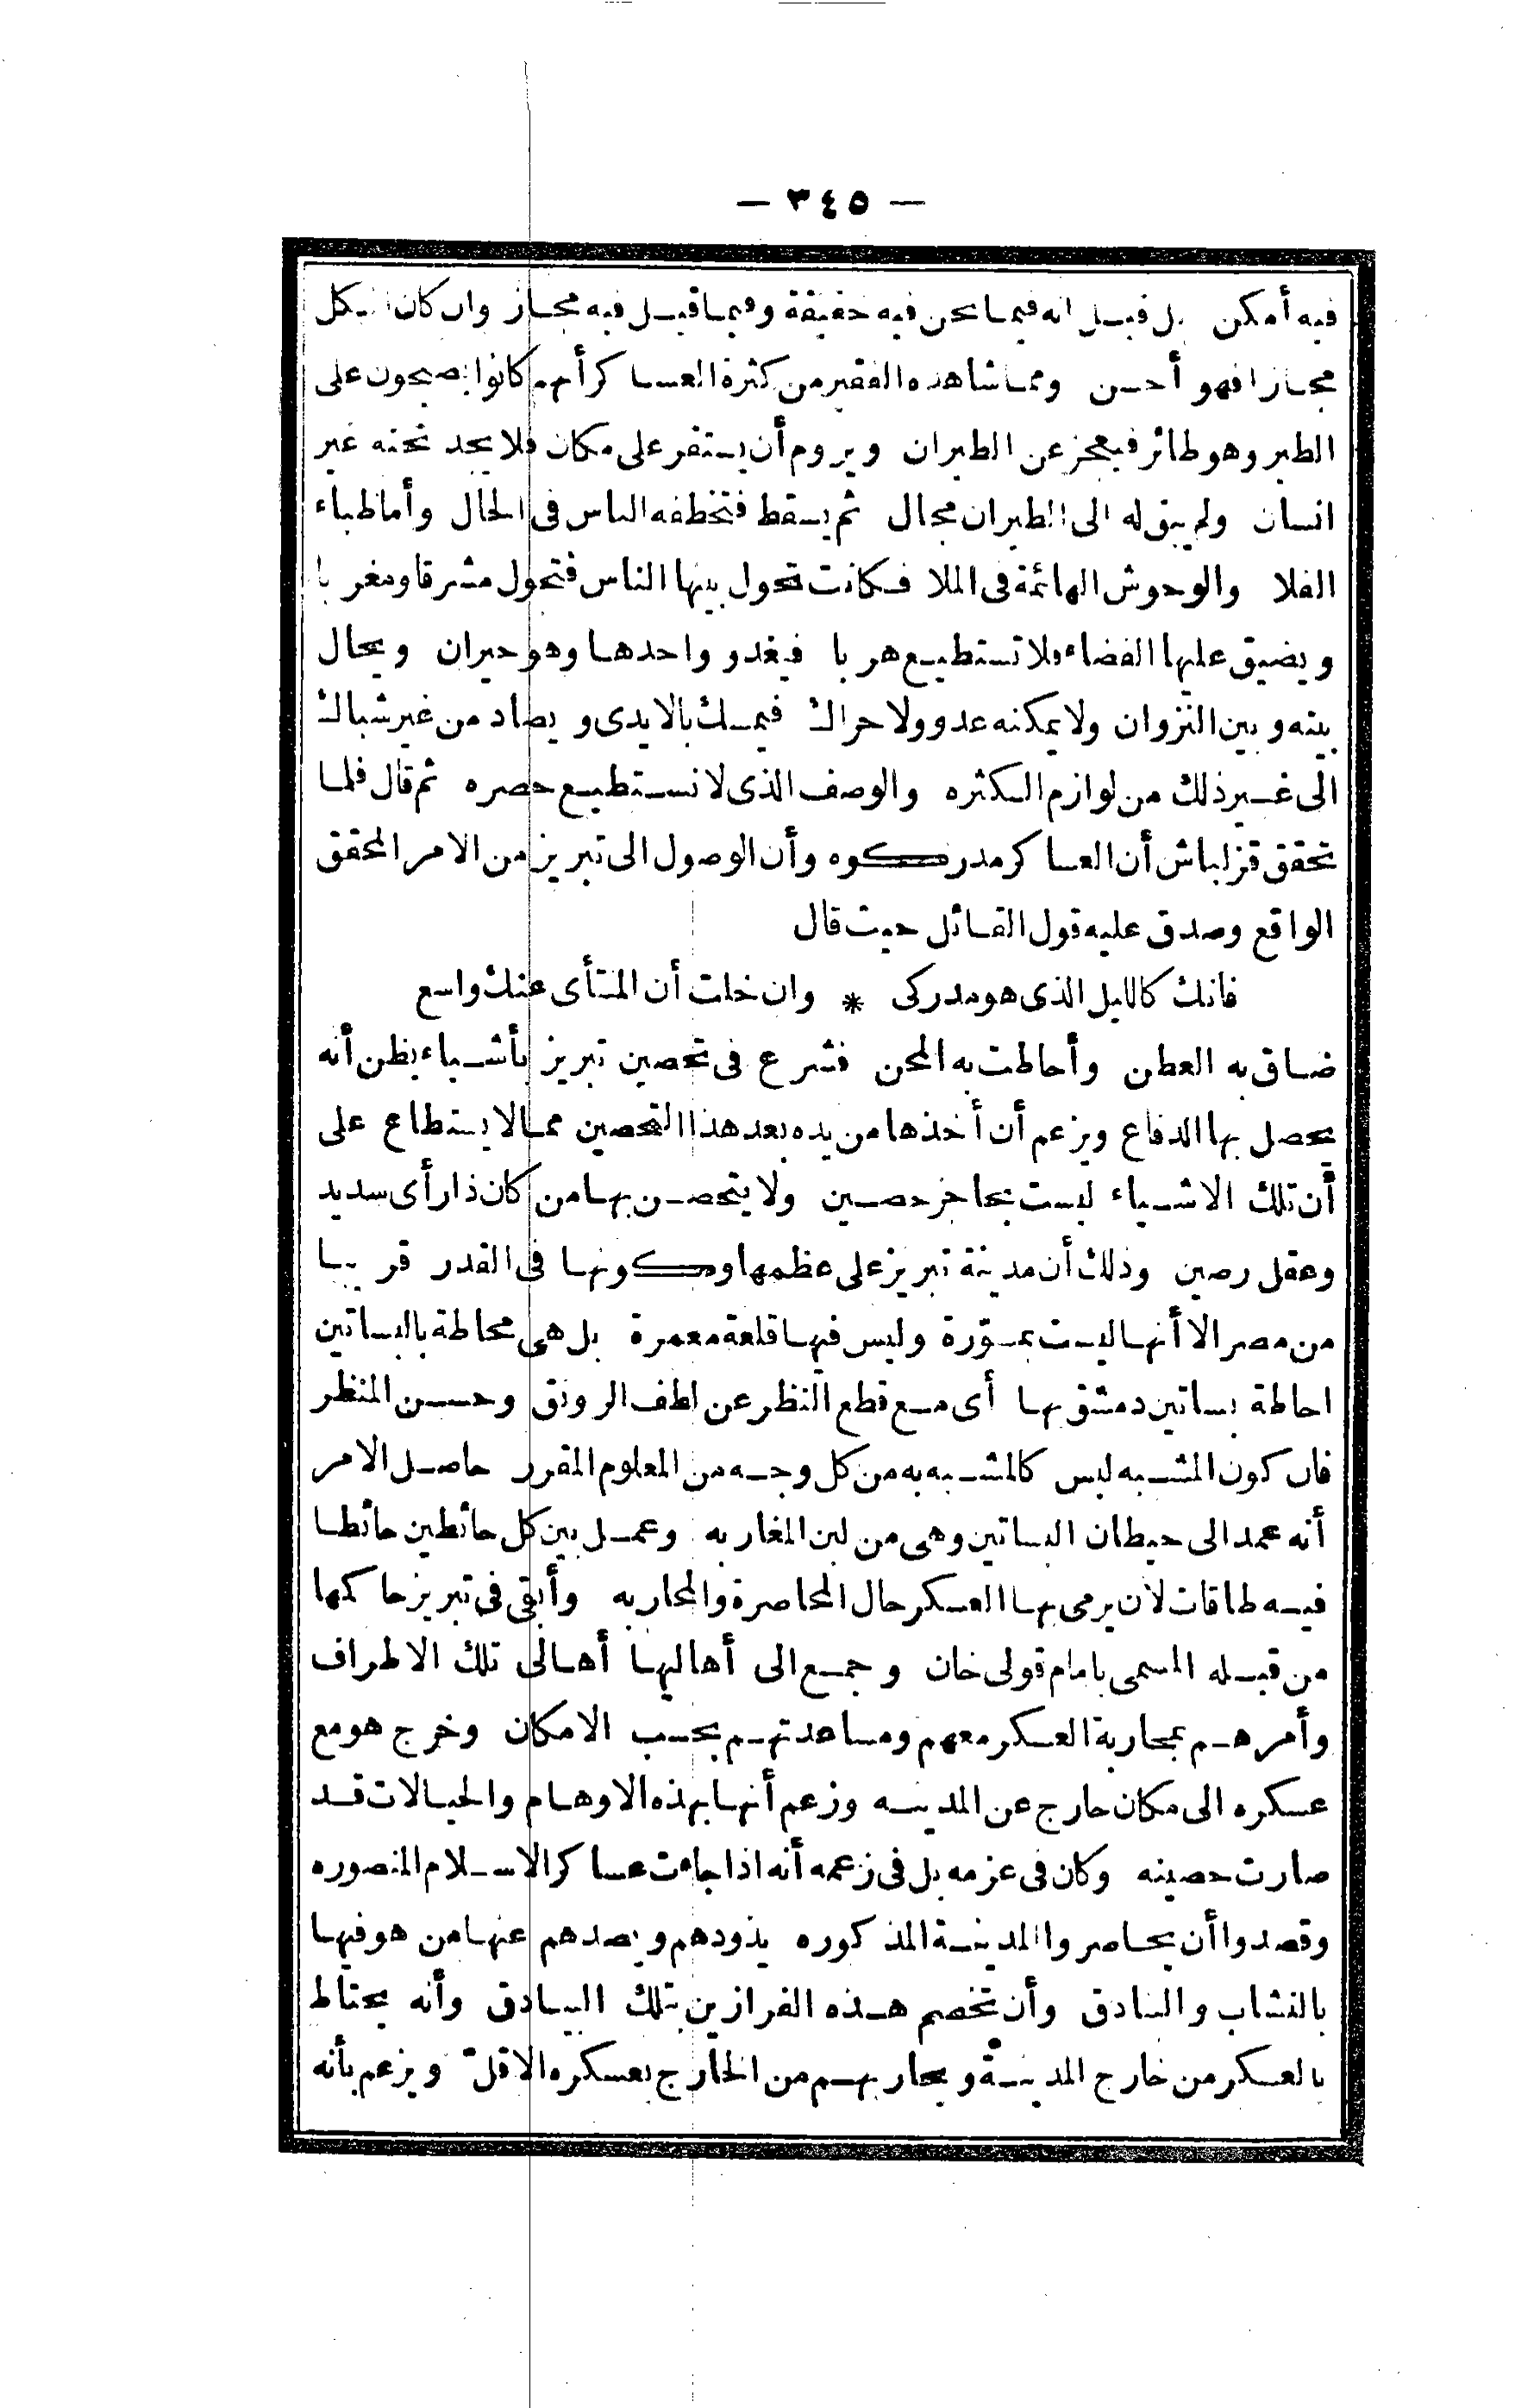 — ٣٤٥ —
فيه أمكن بل قيل انه فيما نحن فيه حقيقة وفيما قيل فيه مجاز وان كان الكل
مجازا فهو أحسن ومما شاهده الفقير من كثرة العساكر أنهم كانوا يصيحون على
الطير وهو طائر فيعجز عن الطيران ويروم أن يستقر على مكان فلا يجد تحته غير
انسان ولم يبق له الى الطيران مجال ثم يسقط فتخطفه الناس فى الحال وأما ظباء
الفلا والوحوش الهائمة فى الملا فكانت تحول بينها الناس فتجول مشرقا ومغربا
ويضيق عليها الفضاء فلا تستطيع هربا فيغدو واحدها وهو حيران ويحال
بينه وبين النزوان ولا يمكنه عدو ولا حراك فيمسك بالايدى ويصاد من غير شباك
الى غير ذلك من لوازم الكثره والوصف الذى لا نستطيع حصره ثم قال فلما
تحقق قزلباش أن العساكر مدركوه وأن الوصول الى تبريز من الامر المحقق
الواقع وصدق عليه قول القائل حيث قال
فانك كالليل الذى هو مدركى * وان خلت أن المنتأى عنك واسع
ضاق به العطن وأحاطت به المحن فشرع فى تحصين تبريز بأشياء يظن أنه
يحصل بها الدفاع ويزعم أن أخذها من يده بعد هذا التحصين مما لا يستطاع على
أن تلك الاشياء ليست بحاجز حصين ولا يتحصن بها من كان ذا رأى سديد
وعقل رصين وذلك أن مدينة تبريز على عظمها وكونها فى القدر قريبا
من مصر الا أنها ليست بمسوّرة وليس فيها قلعة معمرة بل هى محاطة بالبساتين
احاطة بساتين دمشق بها أى مع قطع النظر عن لطف الرونق وحسن المنظر
فان كون المشبه ليس كالمشبه به من كل وجه من المعلوم المقرر حاصل الامر
أنه عمد الى حيطان البساتين وهى من لبن المغاربه وعمل بين كل حائطين حائطا
فيه طاقات لأن يرمى بها العسكر حال المحاصرة والمحاربه وأبقى فى تبريز حاكمها
من قبله المسمى بامام قولى خان وجمع الى أهاليها أهالى تلك الاطراف
وأمرهم بمحاربة العسكر معهم ومساعدتهم بحسب الامكان وخرج هو مع
عسكره الى مكان خارج عن المدينه وزعم أنها بهذه الاوهام والخيالات قد
صارت حصينه وكان فى عزمه بل فى زعمه أنه اذا جاءت عساكر الاسلام المنصوره
وقصدوا أن يحاصروا المدينة المذكوره يذودهم ويصدهم عنها من هو فيها
بالنشاب والبنادق وأن تخصم هذه الفرازين بتلك البيادق وأنه يحتاط
بالعسكر من خارج المدينة ويحاربهم من الخارج بعسكره الاقلّ ويزعم بأنه